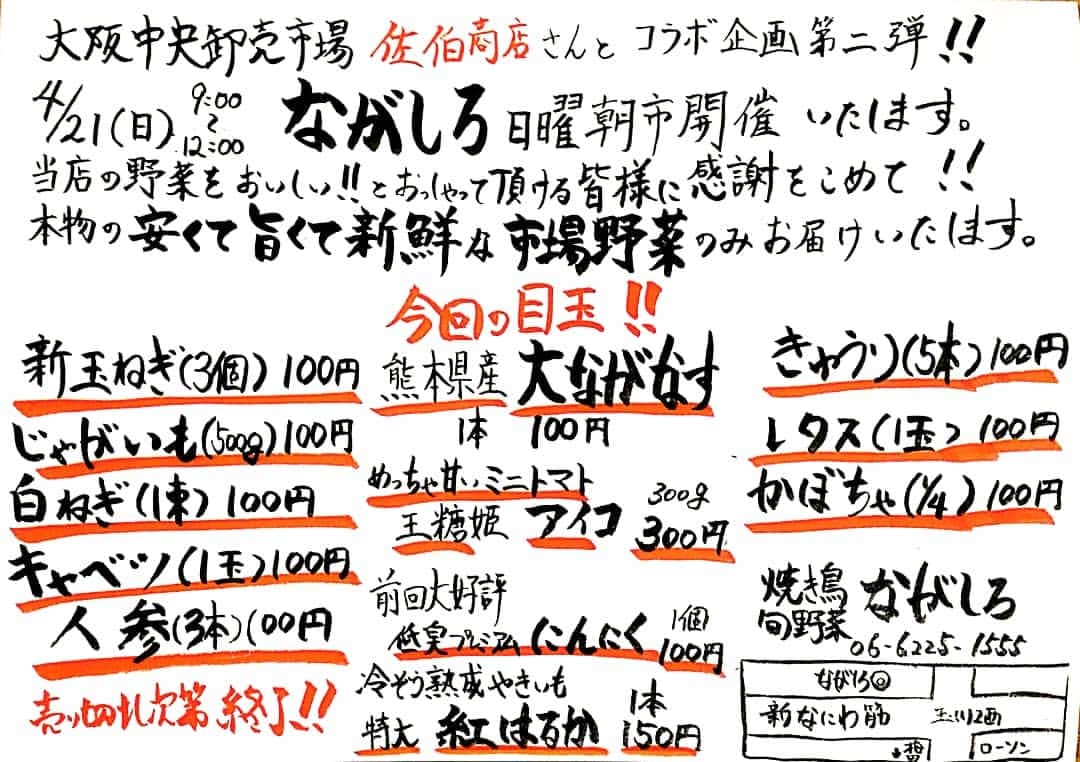 大阪中央卸売市場 佐伯商店さんと コラボ企画第二弾!!
4/21(日) 9:00〜12:00 ながしろ 日曜朝市開催 いたします。
当店の野菜をおいしい!!とおっしゃって頂ける皆様に感謝をこめて!!
本物の安くて旨くて新鮮な市場野菜のみお届けいたします。
今回の目玉!!
新玉ねぎ(3個)100円
じゃがいも(500g)100円
白ねぎ(1束)100円
キャベツ(1玉)100円
人参(3本)100円
売り切れ次第終了!!
熊本県産 大ながなす
1本 100円
めっちゃ甘いミニトマト
王糖姫 アイコ 300g 300円
前回大好評
低臭プレミアム にんにく 1個 100円
冷ぞう熟成やきいも
特大 紅はるか 1本 150円
きゅうり(5本)100円
レタス(1玉)100円
かぼちゃ(1/4)100円
焼き鳥 旬野菜 ながしろ
06-6225-1555
ながしろ
新なにわ筋 玉川2西
ローソン